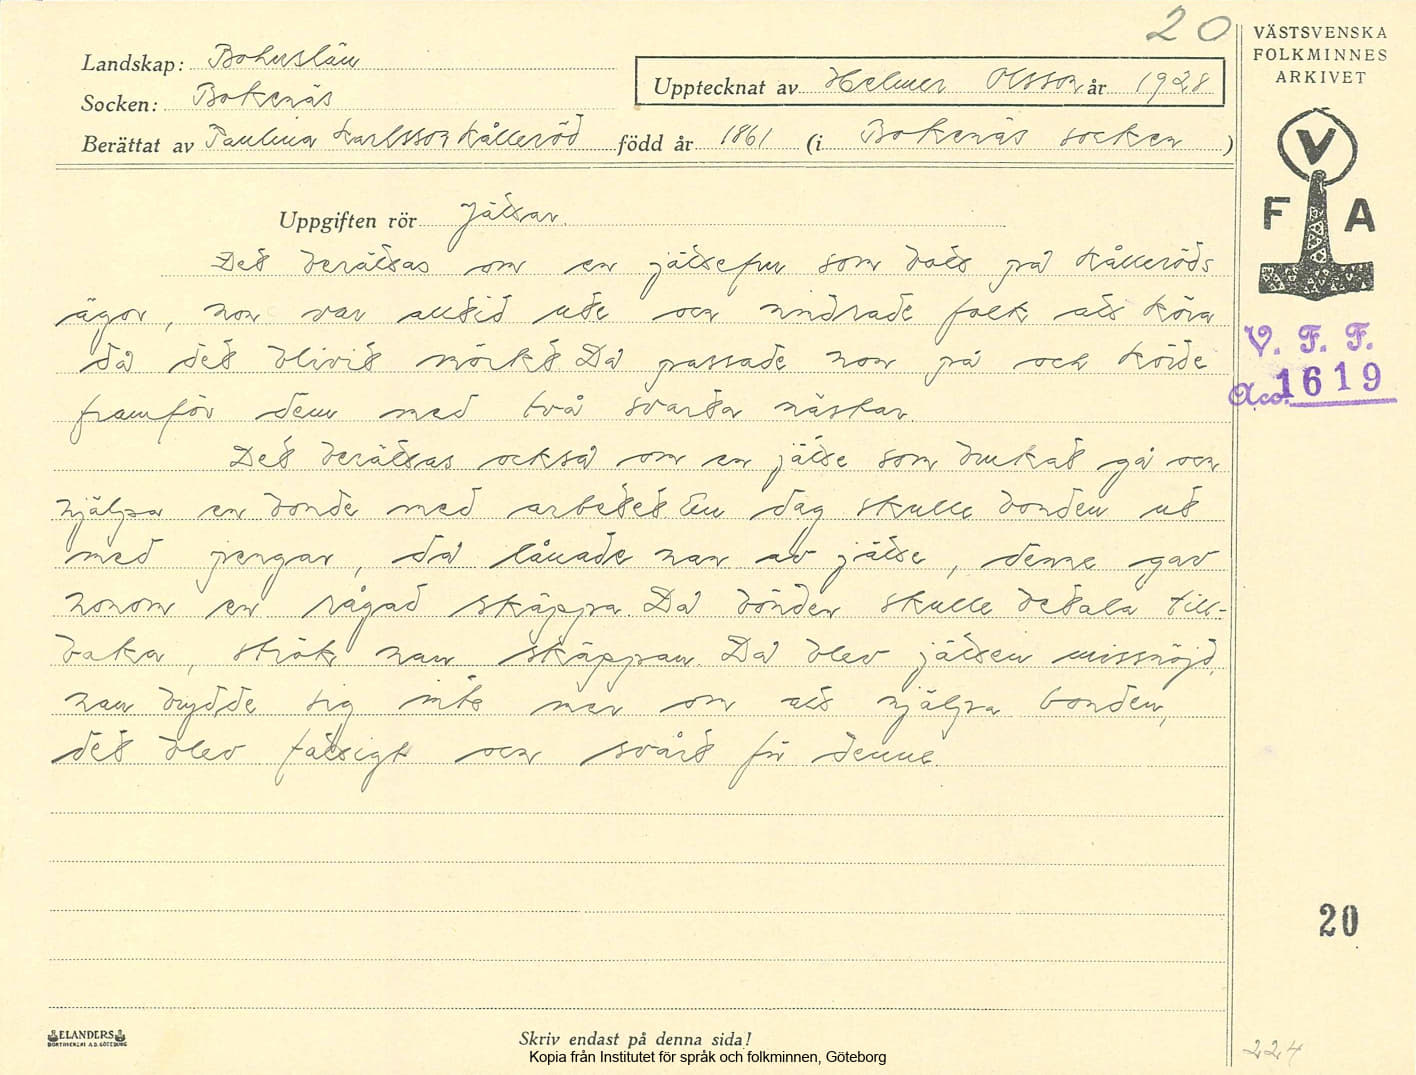 20
VÄSTSVENSKA
FOLKMINNES
ARKIVET
Landskap: Bohuslän
Upptecknat av Helmer Olsson år 1928
Socken: Bokenäs
Berättat av Paulina Karlsson Kålleröd född år 1861 (i Bokenäs socken)
V
F A
Uppgiften rör Jätsar.
Det berättas om en jättefru som bott på Kålleröds
ägor, hon var alltid ute och hindrade folk att köra
då det blivit mörkt. Då passade hon på och körde
framför dem med två svarta hästar.
V. F. F.
Acc. 1619
Det berättas också om en jätte som brukat gå och
hjälpa en bonde med arbetet. En dag skulle bonden ut
med pengar, då lånade han av jätte, denne gav
honom en rågad skäppa. Då bonden skulle betala till-
baka, strök han skäppan. Då blev jätten missnöjd,
han brydde sig inte mer om att hjälpa bonden,
det blev fattigt och svårt för denne.
20
ELANDERS
BOKTRYCKERI A.B. GÖTEBORG
Skriv endast på denna sida!
Kopia från Institutet för språk och folkminnen, Göteborg
224